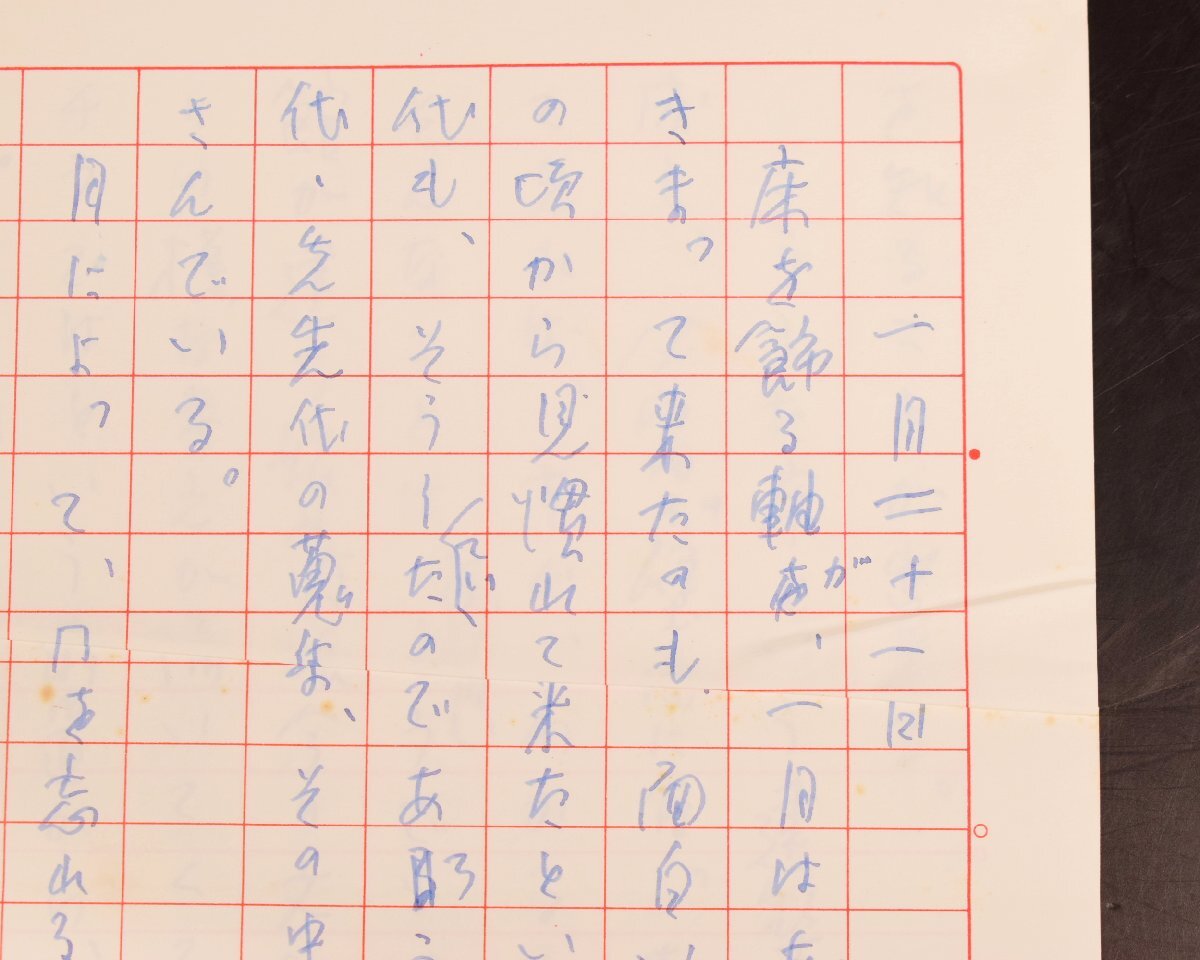 一月二十一日
床を飾る軸が、一月はた
きまって来たのも、面白い
の頃から見慣れて来たとい
代も、そうしていたのであろう
代、先先代の蒐集、その中
さんでいる。
月によって、を忘れる